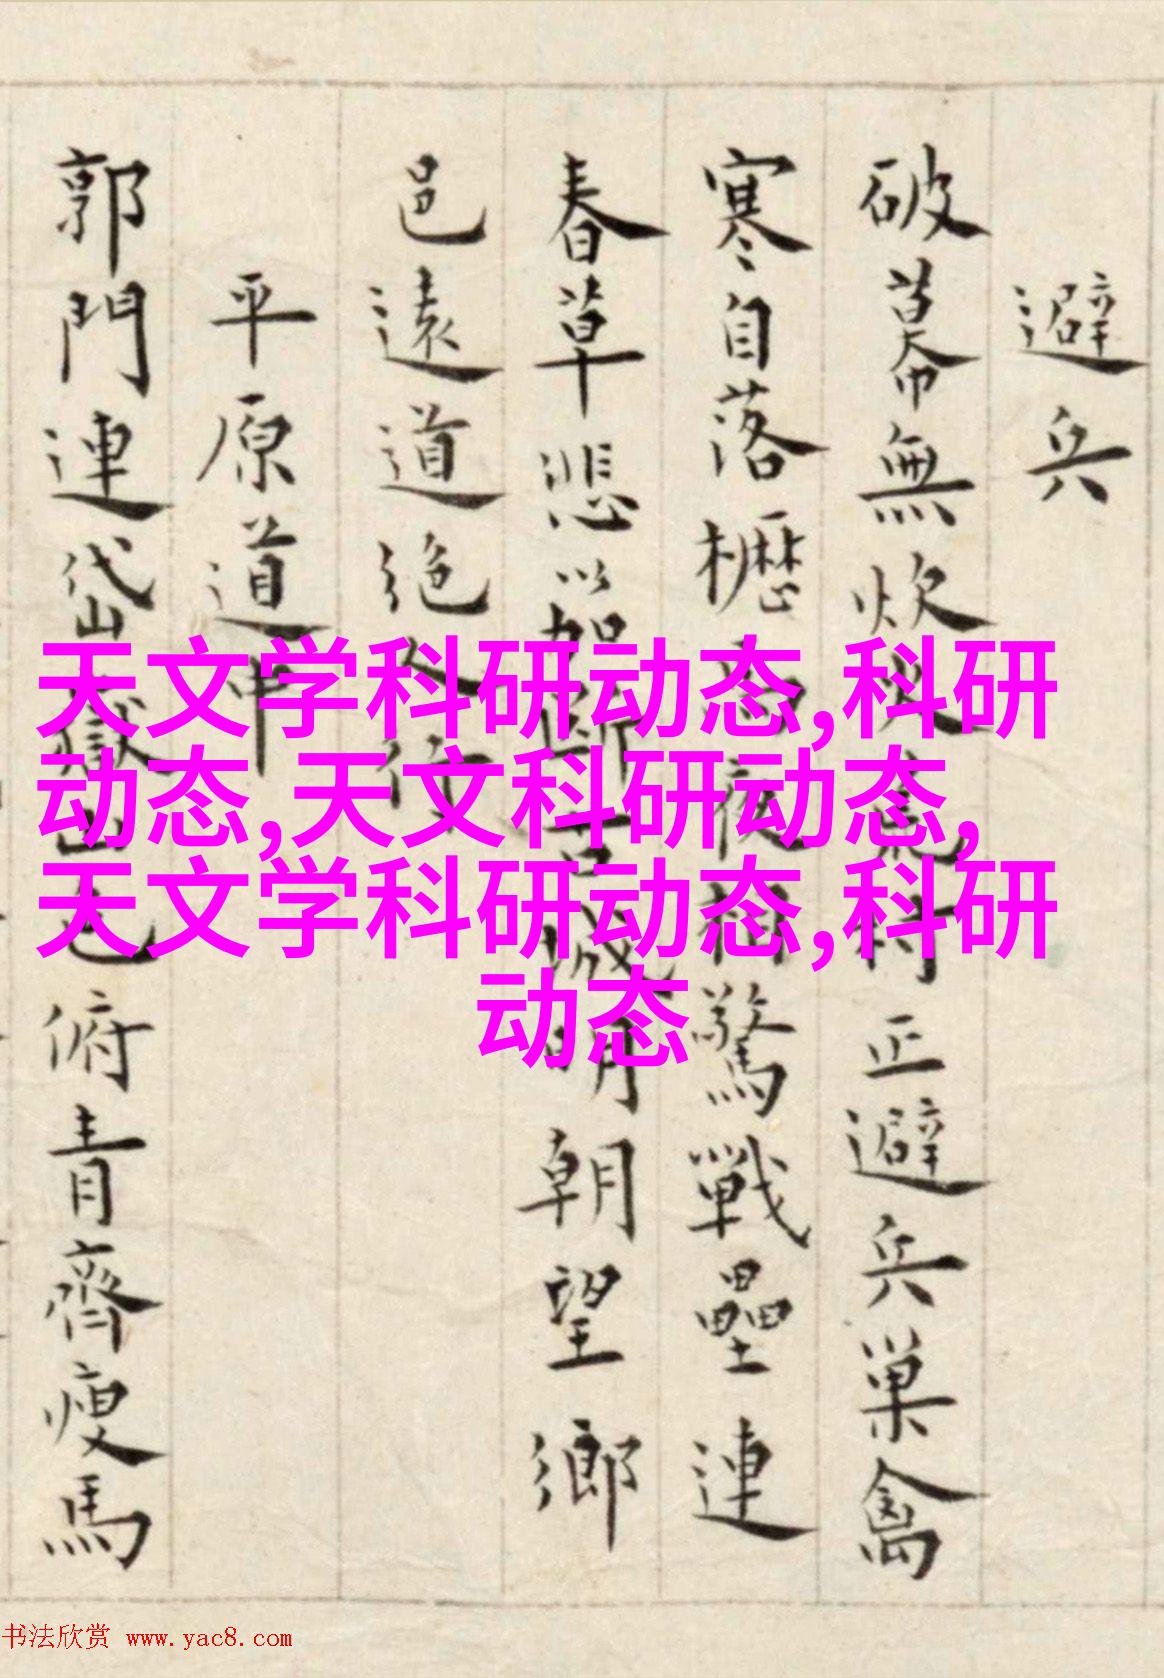 避兵
破幕無炊
正避兵巢禽
寒自落櫪
相驚戰壘連
春草悲笳斷古城明朝望鄉
邑遠道絶人行
平原道中
郭門連岱嶽山色俯青齊瘦馬
天文学科研动态,科研
动态,天文科研动态,
天文学科研动态,科研
动态
书法欣赏 www.yac8.com